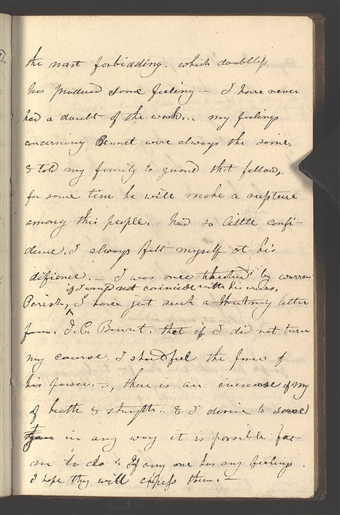 the most forbidding. which doubtless
has produced some feeling — I have never
had a doubt of the work... my feelings
concerning Bennet were always the same,
& told my family to guard that fellow,
for some time he will make a rupture
among this people. had so little confi-
dence, I always felt myself at his
difiance. — I was once by warren
if I would not coinside with his views.
Parish, I have just such a letter
from J. C. Bennet. that if I did not turn
my course I should feel the force of
his power. —, there is an increase of my
of health & strength.. & I desire to serve
in any way it is possible for
me to do. If any one has my feelings.
I hope they will express them. —